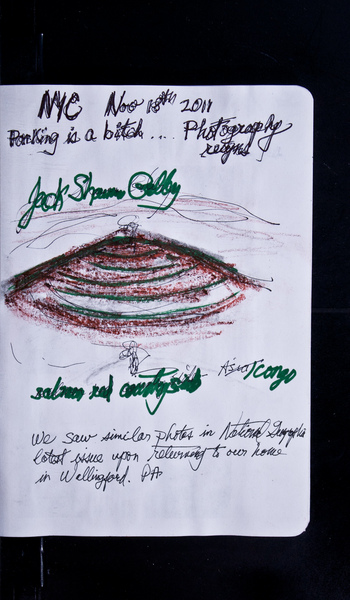 NYC Nov 18th 2011
Parking is a bitch .... Photography
reigns
Jack Shawn Gelby
salmon red countryside
Congo
We saw similar photos in National Geographic
latest issue upon returning to our home
in Wallingford. PA